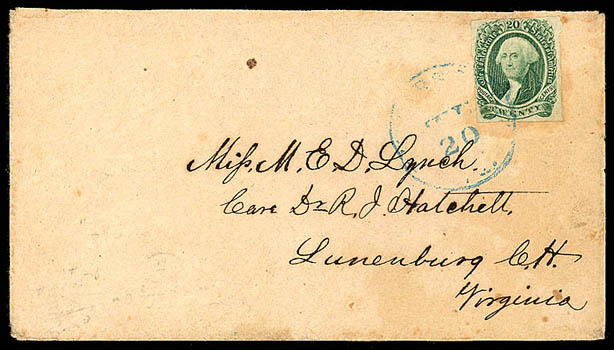 20
TWENTY
20
Miss. M. E. D. Lynch.
Care Dr. R. J. Hatchett,
Lunenburg C. H.
Virginia